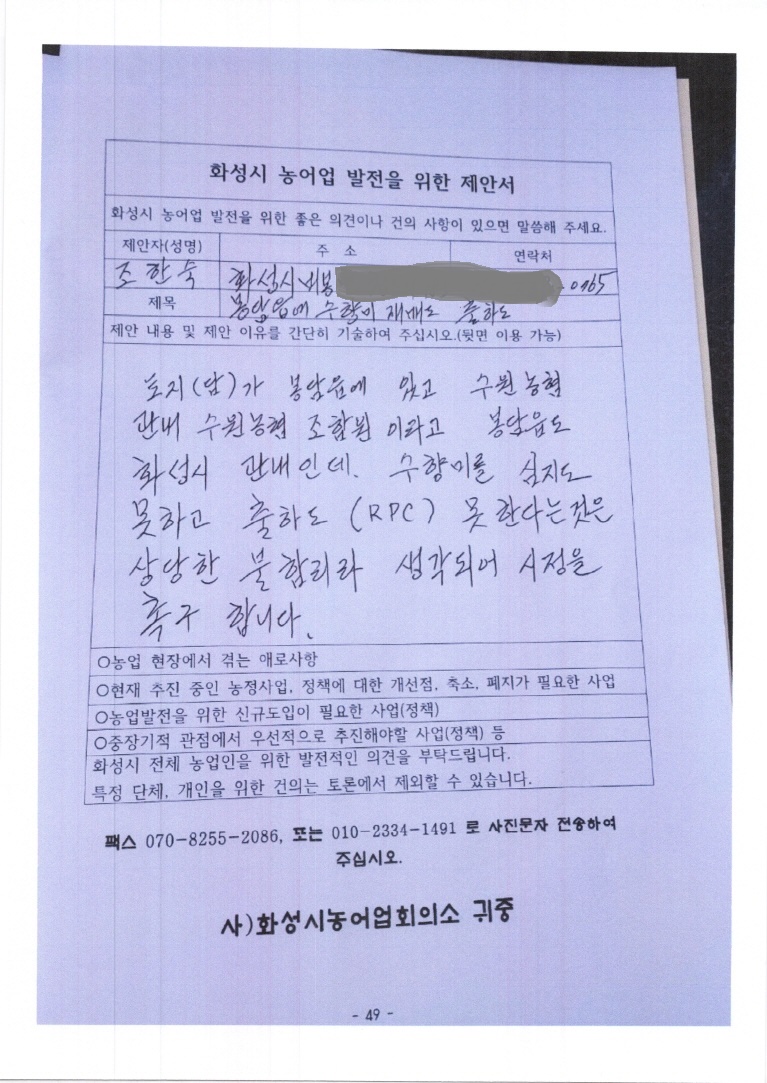 화성시 농어업 발전을 위한 제안서
화성시 농어업 발전을 위한 좋은 의견이나 건의 사항이 있으면 말씀해 주세요.
제안자(성명) 주 소 연락처
조한숙 화성시 비봉 0765
제목 봉담읍에 수향미 재배도 출하도
제안 내용 및 제안 이유를 간단히 기술하여 주십시오.(뒷면 이용 가능)
토지(답)가 봉담읍에 있고 수원농협
관내 수원농협 조합원 이라고 봉담읍도
화성시 관내인데. 수향미를 심지도
못하고 출하도 (RPC) 못한다는것은
상당한 불합리라 생각되어 시정을
촉구 합니다.
○농업 현장에서 겪는 애로사항
○현재 추진 중인 농정사업, 정책에 대한 개선점, 축소, 폐지가 필요한 사업
○농업발전을 위한 신규도입이 필요한 사업(정책)
○중장기적 관점에서 우선적으로 추진해야할 사업(정책) 등
화성시 전체 농업인을 위한 발전적인 의견을 부탁드립니다.
특정 단체, 개인을 위한 건의는 토론에서 제외할 수 있습니다.
팩스 070-8255-2086, 또는 010-2334-1491 로 사진문자 전송하여
주십시오.
사)화성시농어업회의소 귀중
- 49 -